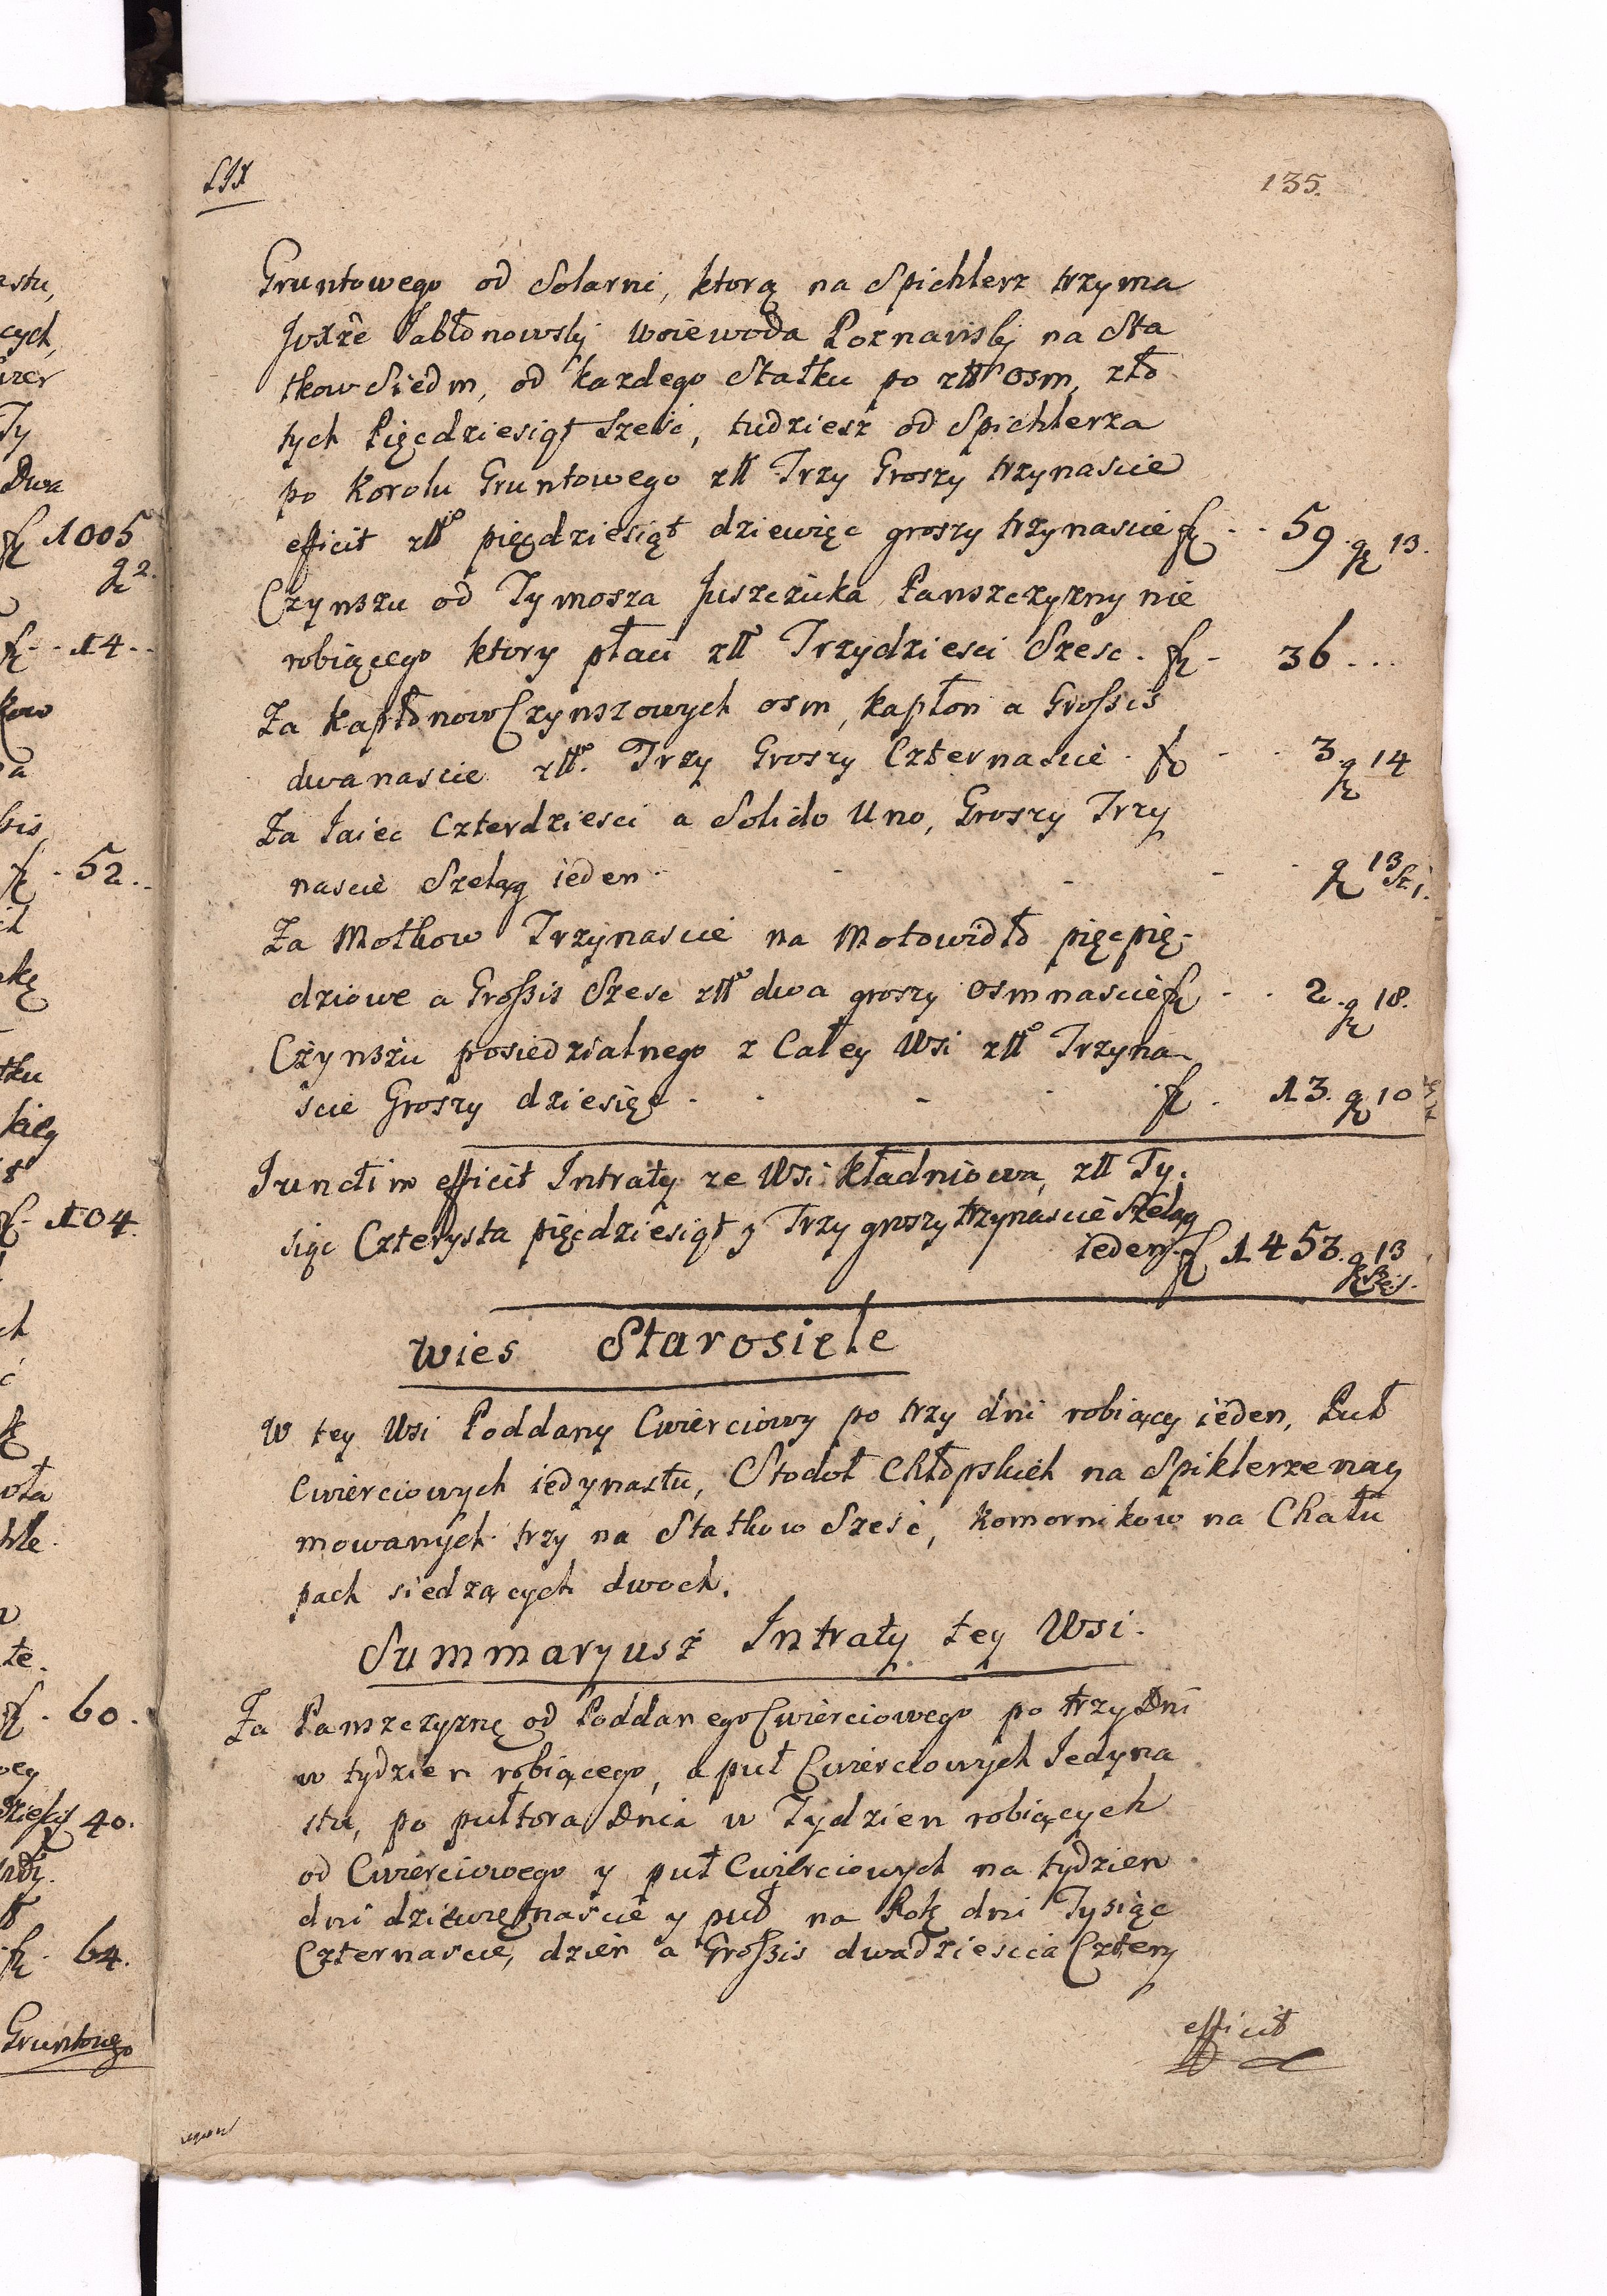 LIX
135.
Gruntowego od Solarni, ktorą na Spichlerz trzyma
Jabłonowsky woiewoda Poznańsky na Sta
tkow Siedm, od każdego Statku po złł osm, zło
tych Pięcdziesiąt Szesć, tudziesz od Spichlerza
po Korolu Gruntowego złł Trzy Groszy trzynascie
efficit złł pięcdziesiąt dziewięc groszy trzynascie fl - - 59. gr 13.
Czynszu od Tymosza Juszczuka Panszczyzny nie
robiącego ktory płaci złł Trzydziesci Szesc. fl - 36 ...
Za Kapłonow Czynszowych osm, kapłon a Grossis
dwanascie złł. Trzy Groszy Czternascie. fl - - 3. gr 14
Za Iaiec Czterdziesci a Solido Uno, Groszy Trzy
nascie Szeląg ieden - - - - - gr 13 Sz 1.
Za Motkow Trzynascie na Motowidło pięcpię-
dziowe a Grossis Szesc złł dwa groszy Osmnascie fl - - 2. gr 18.
Czynszu posiedzialnego z Całey Wsi złł Trzyna
scie Groszy dziesięc - - - - fl - 13. gr 10
Junctim efficit Intraty ze Wsi Kładniowa, złł Ty.
siąc Czterysta pięcdziesiąt y Trzy groszy trzynascie Szeląg
ieden fl 1453. gr 13
wies Starosiele
W tey Wsi Poddany Cwierciowy po trzy dni robiący ieden, Puł
Cwierciowych iedynastu, Stodoł Chłopskich na Spiklerze nay
mowanych trzy na Statkow Szesć, Komornikow na Chału
pach siedzących dwoch.
Summaryusz Intraty tey Wsi.
Za Panszczyznę od Poddanego Cwierciowego po trzy Dni
w tydzien robiącego, a puł Cwierciowych Iedyna
stu, po pułtora Dnia w Tydzien robiących
od Cwierciowego y puł Cwierciowych na tydzien
dni dziewiętnascie y puł na Rok dni Tysiąc
Czternascie, dzień a Grossis dwadziescia Cztery
efficit
1005
gr 2.
fl - - 14 - -
fl - 52 - -
fl - 104.
fl - 60.
40.
fl - 64.
Gruntowego